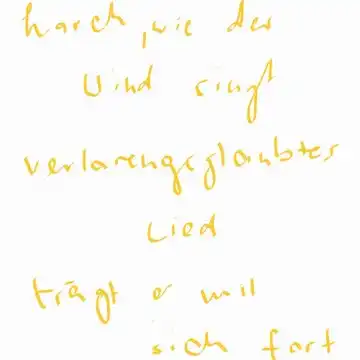 harch, wie der
Wind singt
verlorengeglaubtes
Lied
trägt er mit
sich fort